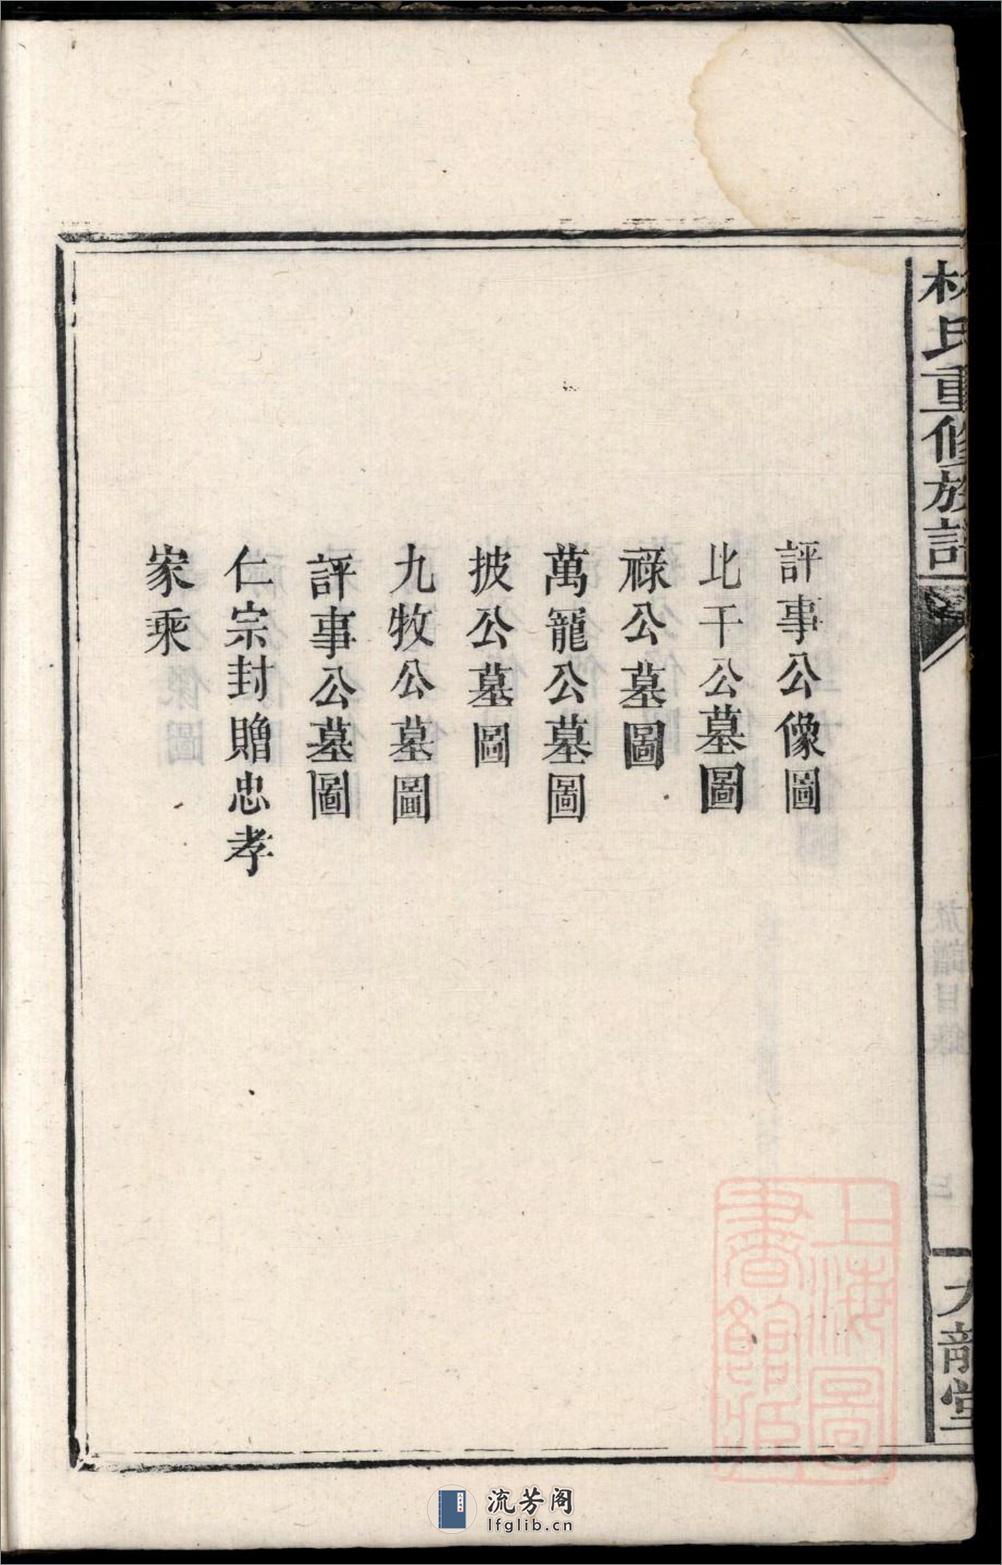 林氏重修族譜
評事公像圖
比干公墓圖
祿公墓圖
萬寵公墓圖
披公墓圖
九牧公墓圖
評事公墓圖
仁宗封贈忠孝
家乘
族譜目錄
九龍堂
上海圖
書館藏
流芳阁
lfglib.cn